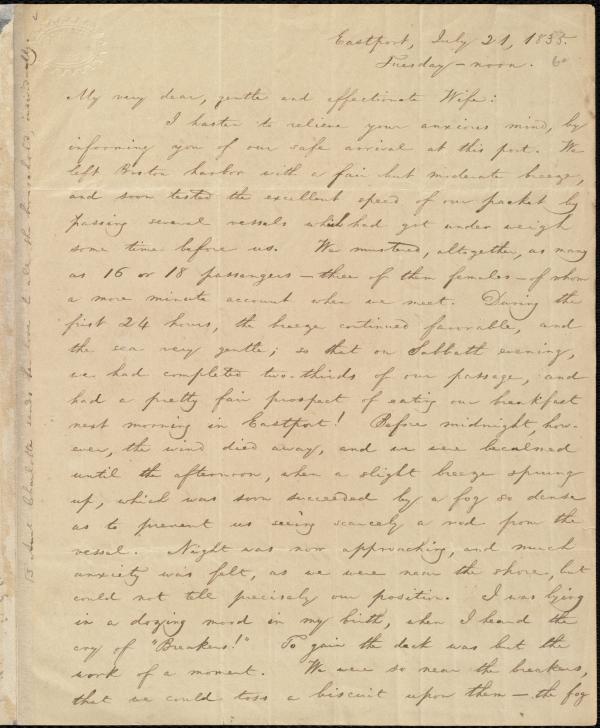 Eastport, July 21, 1835.
Tuesday - noon.
My very dear, gentle and affectionate Wife:
I hasten to relieve your anxious mind, by
informing you of our safe arrival at this port. We
left Boston harbor with a fair but moderate breeze,
and soon tested the excellent speed of our packet by
passing several vessels which had got under weigh
some time before us. We mustered, altogether, as many
as 16 or 18 passengers - three of them females - of whom
a more minute account when we meet. During the
first 24 hours, the breeze continued favorable, and
the sea very gentle; so that on Sabbath evening,
we had completed two-thirds of our passage, and
had a pretty fair prospect of eating our breakfast
next morning in Eastport! Before midnight, how-
ever, the wind died away, and we were becalmed
until the afternoon, when a slight breeze sprung
up, which was soon succeeded by a fog so dense
as to prevent us seeing scarcely a rod from the
vessel. Night was now approaching, and much
anxiety was felt, as we were near the shore, but
could not tell precisely our position. I was lying
in a dozing mood in my birth, when I heard the
cry of "Breakers!" To gain the deck was but the
work of a moment. We were so near the breakers,
that we could toss a biscuit upon them - the fog
Aunt Charlotte sends her love to all the household,